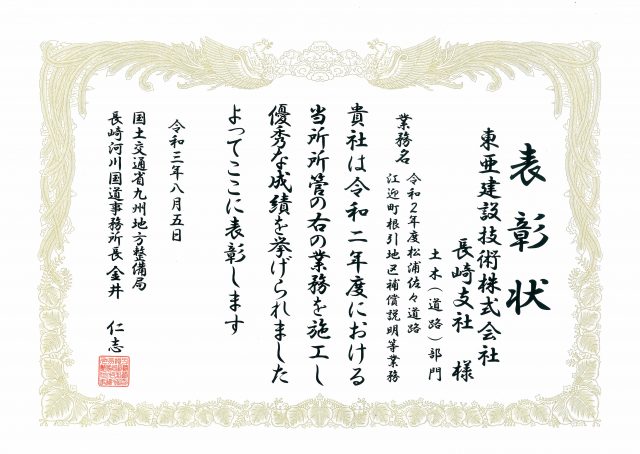 表彰状
東亜建設技術株式会社
長崎支社 様
土木(道路)部門
業務名 令和2年度松浦佐々道路
江迎町根引地区補償説明等業務
貴社は令和二年度における
当所所管の右の業務を施工し
優秀な成績を挙げられました
よってここに表彰します
令和三年八月五日
国土交通省九州地方整備局
長崎河川国道事務所長 金井 仁志